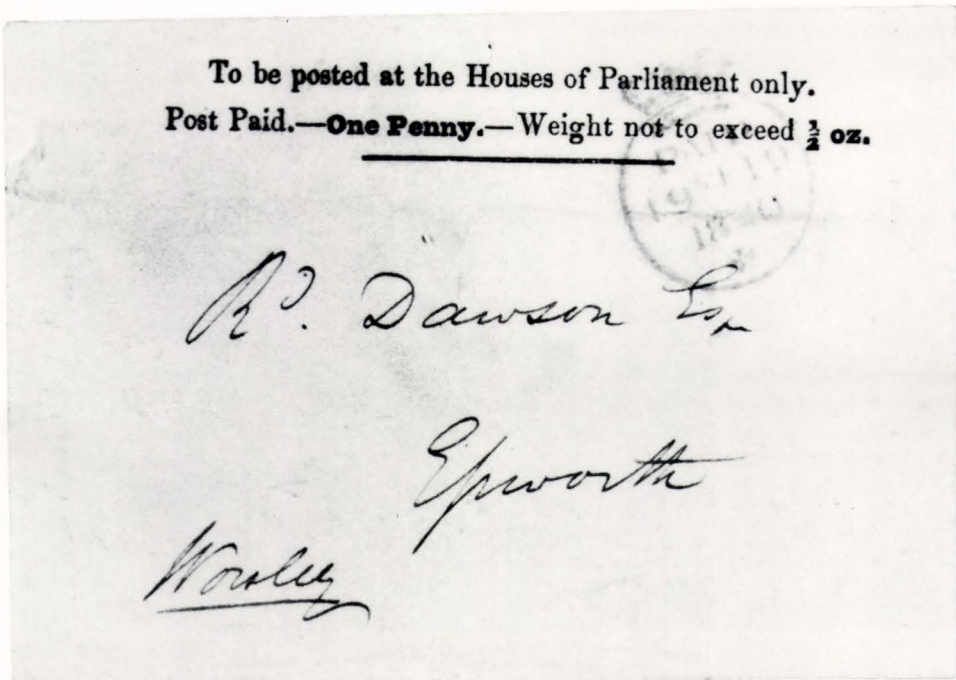 To be posted at the Houses of Parliament only.
Post Paid.—One Penny.—Weight not to exceed ½ oz.
PAID
1840
Rd. Dawson Esq
Epworth
Worsley